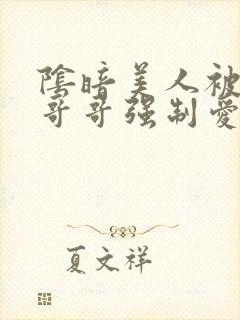 陰暗美人被
哥哥强制愛
夏文祥